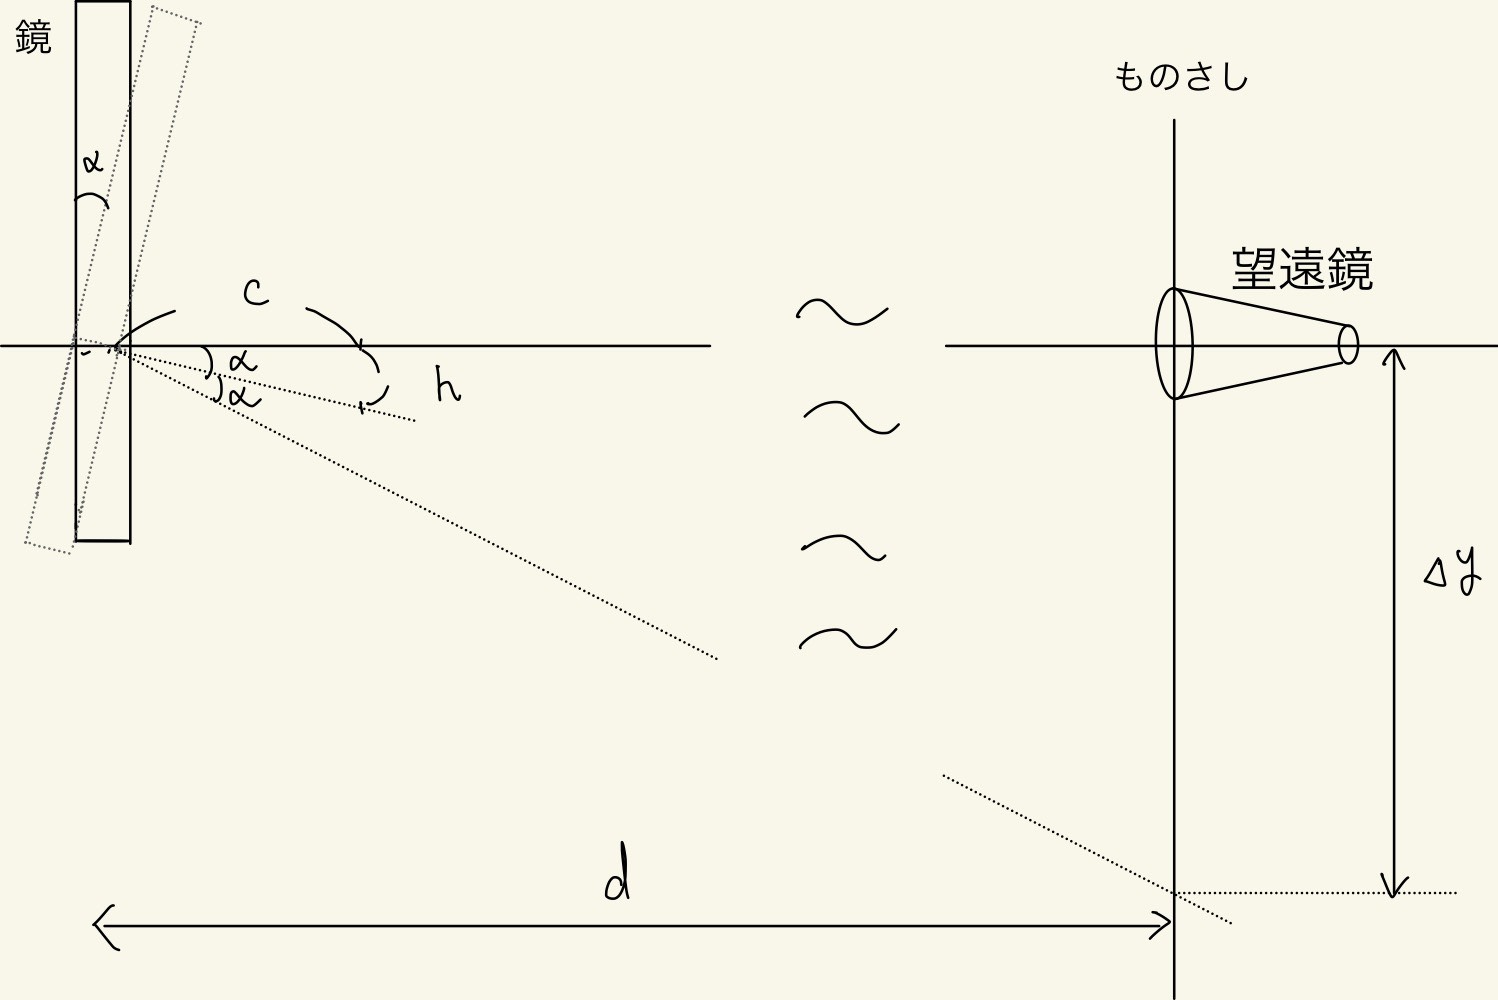 鏡
ものさし
α
望遠鏡
c
α
α
h
Δy
d